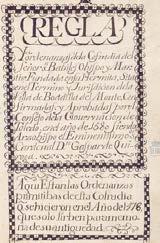 REGLA
Y ordenanzas de la Cofradia del
Señor S. Blas, Obispo y Mar
tir Fundada en su Hermita, Sita
en el Termino y Jurisdicion de la
Villa de
firmada y Aprobada por el
Consejo de la Governacion de
Toledo, en el año de siendo
Arzobispo el Eminentissimo
Cardenal D.ⁿ Gaspar de Qui
roga.
Aqui Estan las Ordenanzas
primitibas de esta Cofradia
q.e se hicieron en el Año de
que solo sirben para memo
ria de su antiguedad.